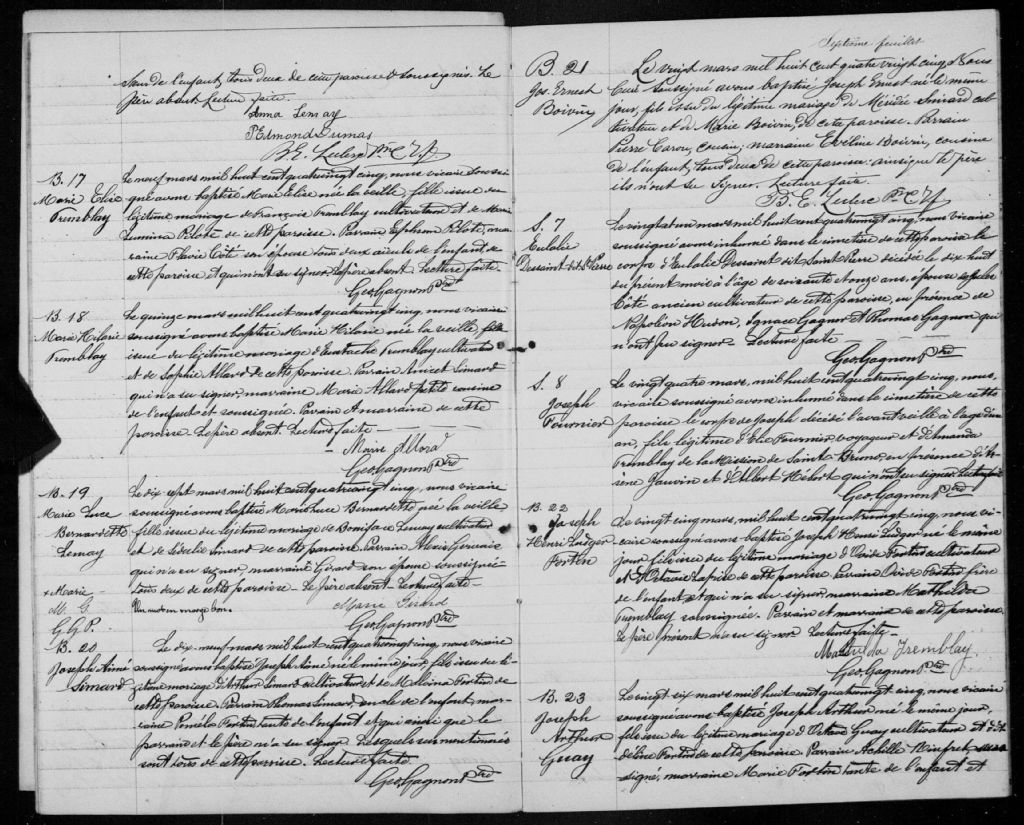 Sœur de l'enfant, tous deux de cette paroisse & soussignés. Le
père absent. Lecture faite.
Anna Lemay
P. Edmond Dumas
B. E. Leclerc Ptre
B. 17
Marie Elise
Tremblay
Le neuf mars mil huit cent quatrevingt cinq, nous vicaire soussi-
gné avons baptisé Marie Elise née la veille, fille issue du
légitime mariage de François Tremblay cultivateur et de Marie
Lumina Pilote de cette paroisse. Parrain Ephrem Pilote, mar-
raine Flavie Côté son épouse tous deux aïeuls de l'enfant de
cette paroisse et qui n'ont su signer. Le père absent. Lecture faite
Geo. Gagnon Ptre
B. 18
Marie Hilarie
Tremblay
Le quinze mars mil huit cent quatrevingt cinq, nous vicaire
soussigné avons baptisé Marie Hilarie née la veille, fille
issue du légitime mariage d'Eustache Tremblay cultivateur
et de Sophie Allard de cette paroisse. Parrain Anicet Simard
qui n'a su signer, marraine Marie Allard petite cousine
de l'enfant et soussignée. Parrain et marraine de cette
paroisse. Le père absent. Lecture faite
Marie Allard
Geo. Gagnon Ptre
B. 19
Marie Luce
Bernardette
Lemay
Le dix sept mars mil huit cent quatrevingt cinq, nous vicaire
soussigné avons baptisé Marie Luce Bernardette née la veille
fille issue du légitime mariage de Boniface Lemay cultivateur
et de Sidelie Simard de cette paroisse. Parrain Alexis Gervais
qui n'a su signer, marraine Girard son épouse soussignée
tous deux de cette paroisse. Le père absent. Lecture faite
+ Marie
M. G.
G. G. P.
Un mot en marge bon.
Marie Girard
Geo. Gagnon Ptre
B. 20
Joseph Aimé
Simard
Le dix neuf mars mil huit cent quatrevingt cinq, nous vicaire
soussigné avons baptisé Joseph Aimé né le même jour, fils issu du lé-
gitime mariage d'Arthur Simard cultivateur et de Mélina Fortin de
cette paroisse. Parrain Thomas Simard, oncle de l'enfant, mar-
raine Pamela Fortin tante de l'enfant et qui ainsi que le
parrain et le père n'a su signer. Lesquels sus mentionnés
sont tous de cette paroisse. Lecture faite
Geo. Gagnon Ptre
Septième feuillet
B. 21
Jos. Ernest
Boivin
Le vingt mars mil huit cent quatre vingt cinq Nous
Curé soussigné avons baptisé Joseph Ernest né le même
jour, fils issu du légitime mariage de Simard cul-
tivateur et de Marie Boivin, de cette paroisse. Parrain
Pierre Caron, cousin; marraine Eveline Boivin, cousine
de l'enfant, tous deux de cette paroisse: ainsi que le père
ils n'ont su signer. Lecture faite.
B. E. Leclerc Ptre
S. 7
Eulalie
Dessaint dit St Pierre
Le vingt et un mars mil huit cent quatrevingt cinq, nous vicaire
soussigné avons inhumé dans le cimetière de cette paroisse le
corps d'Eulalie Dessaint dit Saint Pierre décédée le dix huit
du présent mois à l'âge de soixante et onze ans, épouse
Côté ancien cultivateur de cette paroisse, en présence de
Napoléon Hudon, Ignace Gagnon et Thomas Gagnon qui
n'ont pu signer. Lecture faite
Geo. Gagnon Ptre
S. 8
Joseph
Fournier
Le vingt quatre mars, mil huit cent quatrevingt cinq, nous,
vicaire soussigné avons inhumé dans le cimetière de cette
paroisse le corps de Joseph décédé l'avant veille à l'âge d'un
an, fils légitime d'Elie Fournier voyageur et d'Amanda
Tremblay de la Mission de Saint Bruno, en présence d'Ar-
sène Gauvin et d'Albert Hébert qui n'ont su signer. Lecture faite
Geo. Gagnon Ptre
B. 22
Joseph
Henri Ludger
Fortin
Le vingt cinq mars, mil huit cent quatrevingt cinq, nous vi-
caire soussigné avons baptisé Joseph Henri Ludger né le même
jour fils issu du légitime mariage d'Ovide Fortin cultivateur
et d'Octavie Lapise de cette paroisse. Parrain Ovide Fortin frère
de l'enfant et qui n'a su signer, marraine Mathilda
Tremblay soussignée. Parrain et marraine de cette paroisse.
Le père présent n'a su signer. Lecture faite
Mathilda Tremblay.
Geo. Gagnon Ptre
B. 23
Joseph
Arthur
Guay
Le vingt six mars mil huit cent quatrevingt cinq, nous vicaire
soussigné avons baptisé Joseph Arthur né le même jour,
fils issu du légitime mariage d'Octave Guay cultivateur et d'A-
dèline Fortin de cette paroisse. Parrain Achille Rinfret sous-
signé, marraine Marie Fortin tante de l'enfant et